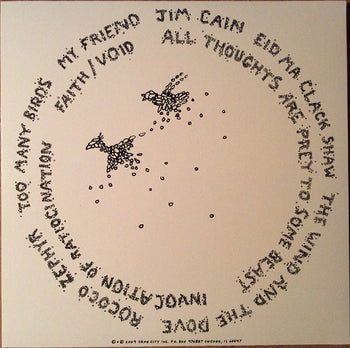 JIM CAIN
EID MA CLACK SHAW
THE WIND AND THE DOVE
ROCOCO ZEPHYR
TOO MANY BIRDS
MY FRIEND
ALL THOUGHTS ARE PREY TO SOME BEAST
INVOCATION OF RATIOCINATION
FAITH/VOID
© 2009 DRAG CITY INC. P.O. BOX 476867 CHICAGO, IL 60647